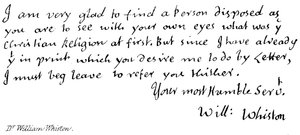 I am very glad to find a Person disposed as
you are to see with your own eyes what was ẙ
Christian Religion at first. But since I have already
ẙ in print which you desire me to do by Letter,
I must beg leave to refer you thither.
Your most Humble Servᵗ.
Will: Whiston
Dʳ William Whiston.